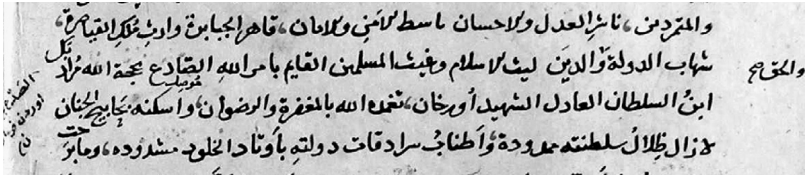 والمتمردين، ناشر العدل والاحسان باسط الامن والامان، قاهر الجبابرة وارث ملك القياصرة،
شهاب الدولة والدين ليث الاسلام وغيث المسلمين القايم بامر الله الصادع بحجة الله مراد بك
والحق صح
ابن السلطان العادل الشهيد أورخان، تغمده الله بالمغفرة والرضوان، واسكنه بحابح الجنان
لا زال ظلال سلطنته ممدودة، وأطناب سرادقات دولته بأوتاد الخلود مشدوده، وما برحت